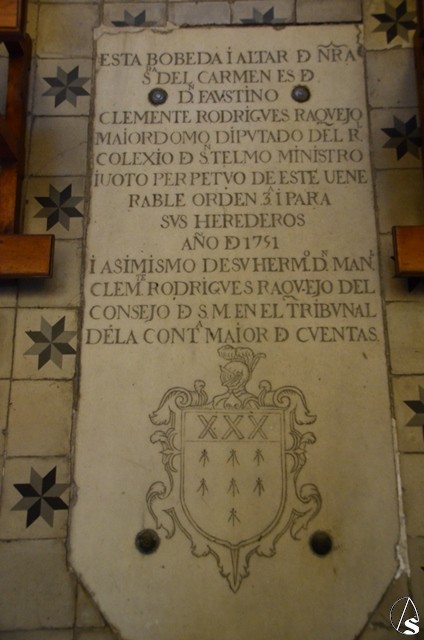 ESTA BOBEDA I ALTAR Đ N̅R̅A
S.ᴿᴬ DEL CARMEN ES Đ
D.ᴺ FAUSTINO
CLEMENTE RODRIGVES RAQVEJO
MAIORDOMO DIPVTADO DEL R.
COLEXIO Đ S.ᴺ TELMO MINISTRO
I VOTO PERPETVO DE ESTE UENE
RABLE ORDEN 3.ᴬ I PARA
SVS HEREDEROS
AÑO Đ 1751
I ASIMISMO DE SV HERM.º D.ᴺ MAN.ᴸ
CLEM.ᵀᴱ RODRIGVES RAQVEJO DEL
CONSEJO Đ S.M. EN EL TRIBVNAL
DE LA CONT.ᴬ MAIOR Đ CVENTAS.
XXX